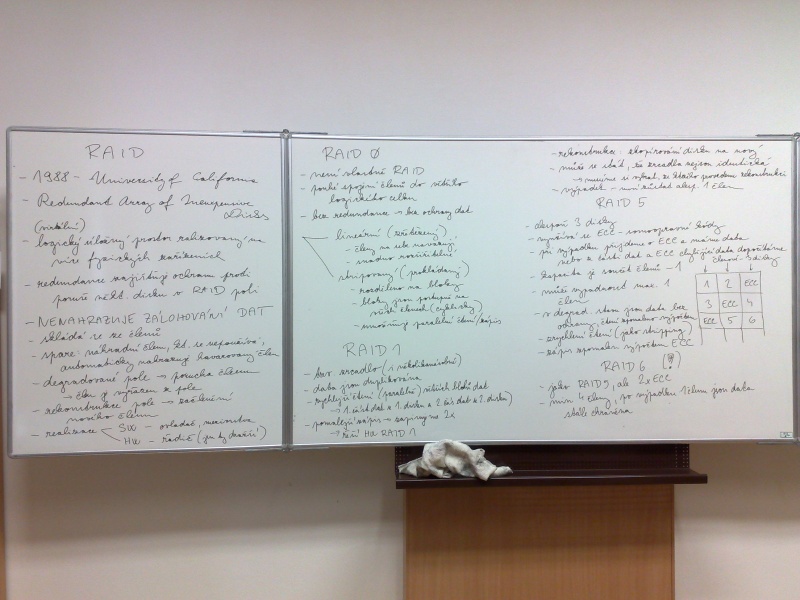 RAID
- 1988 - University of California
- Redundant Array of Inexpensive
Disks
(virtuální)
- logický úložný prostor realizovaný na
více fyzických zařízeních
- redundance zajišťuje ochranu proti
poruše někt. disku v RAID poli
- NENAHRAZUJE ZÁLOHOVÁNÍ DAT
- skládá se ze členů
- spare: náhradní člen, kt. se nepoužívá,
automaticky nahrazuje havarovaný člen
- degradované pole → porucha členem
→ člen je vyřazen z pole
- rekonstrukce pole → začlenění
nového členem
- realizace
SW - ovladač,
HW - řadič (jen ty dražší)
RAID 0
- není vlastně RAID
- pouhé spojení členů do většího
logického celku
- bez redundance → bez ochrany dat
lineární (zřetězený)
- členy na sebe navazují
- snadno rozšiřitelné
stripovaný (prokládaný)
- rozděleno na bloky
- bloky jsou postupně na
všech členech (cyklicky)
- umožňuje paralelní čtení/zápis
RAID 1
- zrcadlo (i několikanásobné)
- data jsou duplikována
- rychlejší čtení (paralelně) větších bloků dat
→ 1. část dat z 1. disku a 2. část dat z 2. disku)
- pomalejší zápis → zapisuji na 2x
→ řeší HW RAID 1
- rekonstrukce: zkopírování disku na nový
- může se stát, že zrcadla nejsou identická
→ musíme si vybrat, ze kterého provedeme rekonstrukci
- výpadek - musí zůstat alesp. 1 člen
RAID 5
- alespoň 3 disky
- využívá se ECC - samoopravné kódy
- při výpadku přijdeme o ECC a máme data
nebo o část dat a ECC chybějící data dopočítáme
- kapacita je součet členů - 1
- může vypadnout max. 1
člen
- v degrad. stavu jsou data bez
ochrany, čtení zpomaleno výpočtem
- zrychlení čtení (jako stripping)
- zápis zpomalen výpočtem ECC
1 2 ECC
3 ECC 4
ECC 5 6
RAID 6 (!)
- jako RAID 5, ale 2x ECC
- min 4 členy, po výpadku 1 členu jsou data
stále chráněna